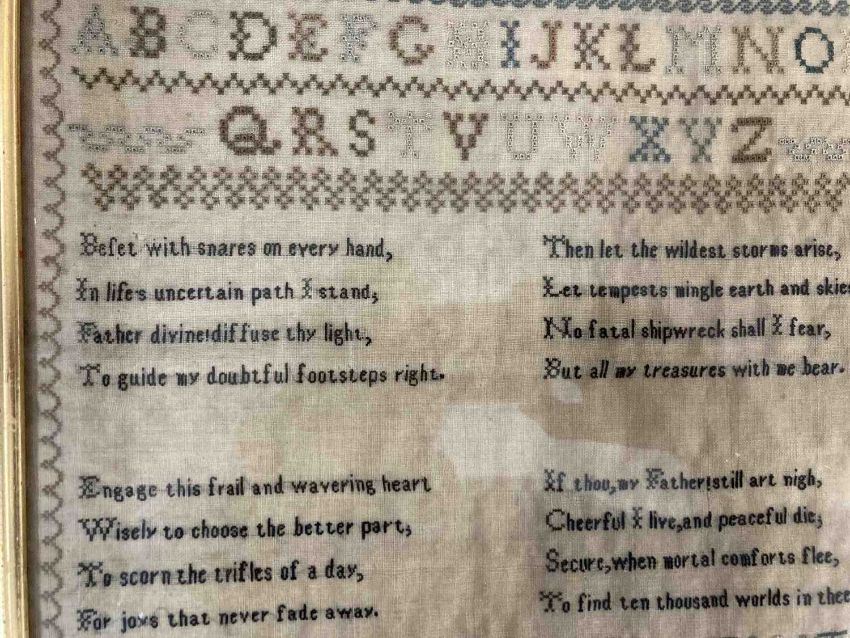 A B C D E F G H I J K L M N O
Q R S T V U W X Y Z
Beſet with snares on every hand,
In life's uncertain path I stand;
Father divine! diffuse thy light,
To guide my doubtful footsteps right.
Engage this frail and wavering heart
Wisely to choose the better part;
To scorn the trifles of a day,
For joys that never fade away.
Then let the wildest storms arise,
Let tempests mingle earth and skies
No fatal shipwreck shall I fear,
But all my treasures with me bear.
If thou, my Father! still art nigh,
Cheerful I live, and peaceful die;
Secure, when mortal comforts flee,
To find ten thousand worlds in thee